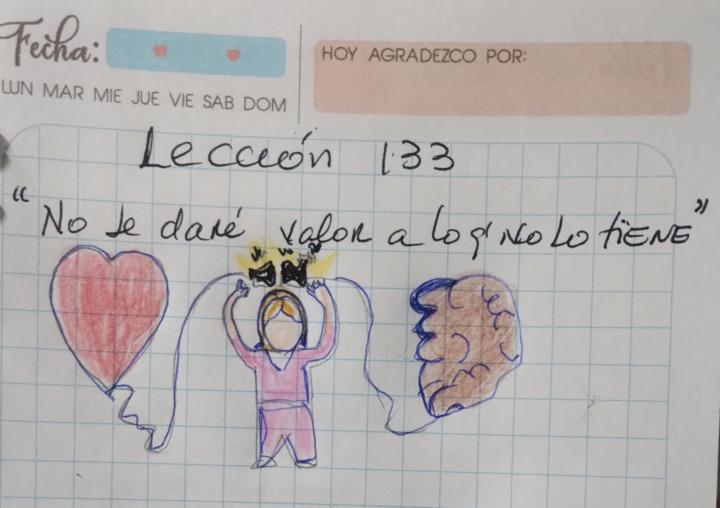 Fecha:
HOY AGRADEZCO POR:
LUN MAR MIE JUE VIE SAB DOM
Lección 133
"No le daré valor a lo q' No Lo tiENE"